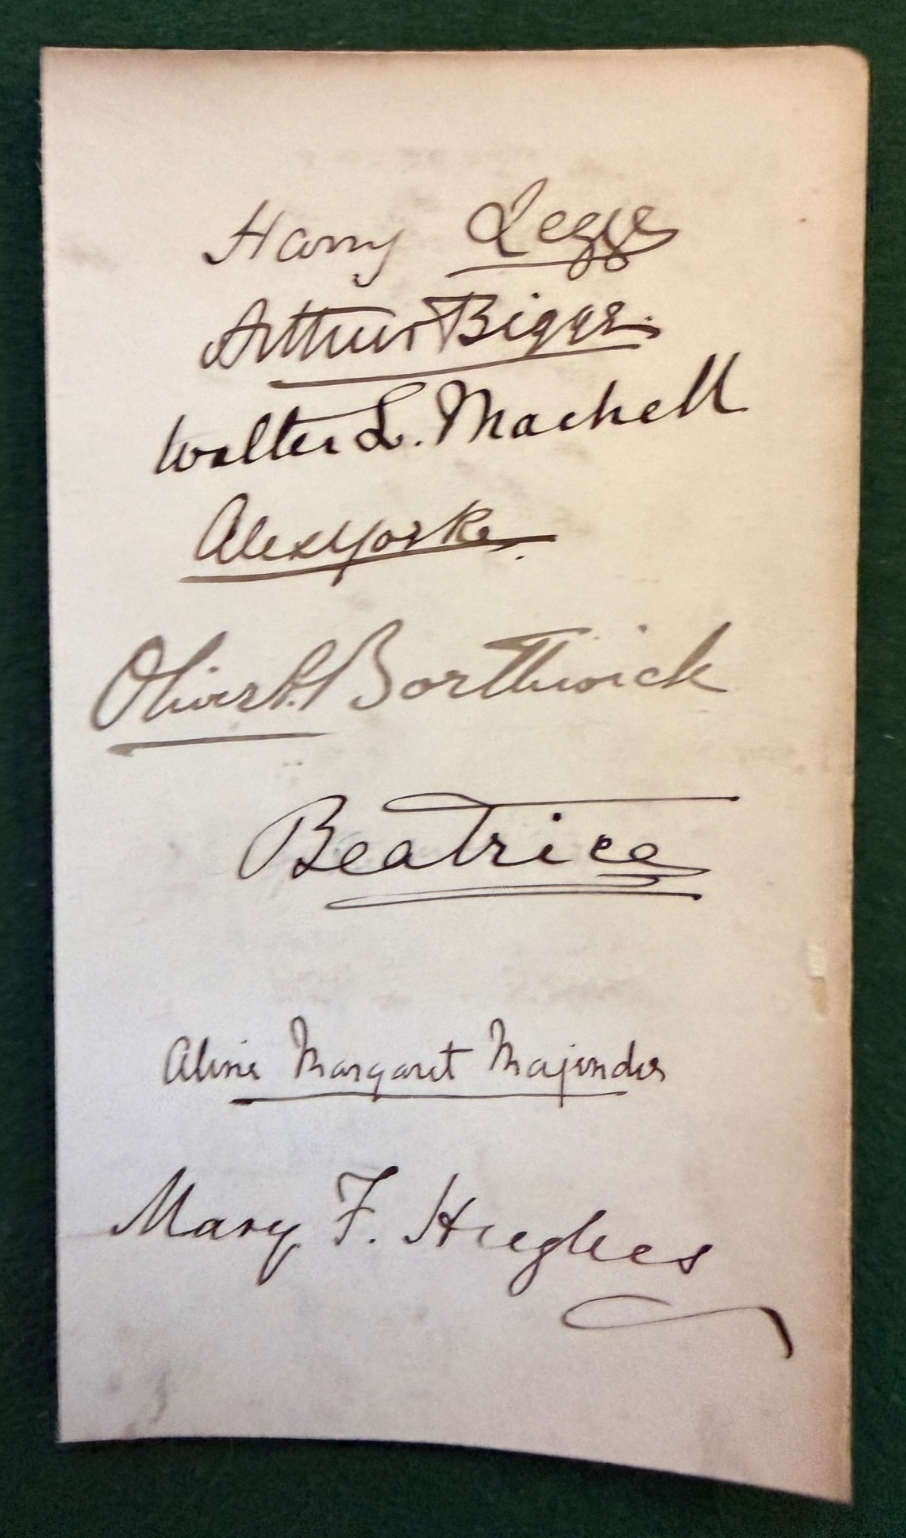 Harry Legge
Arthur Bigge.
Walter L. Machell
Alex Yorke.
Oliver A. Borthwick
Beatrice
Aline Margaret Majendie
Mary F. Hughes